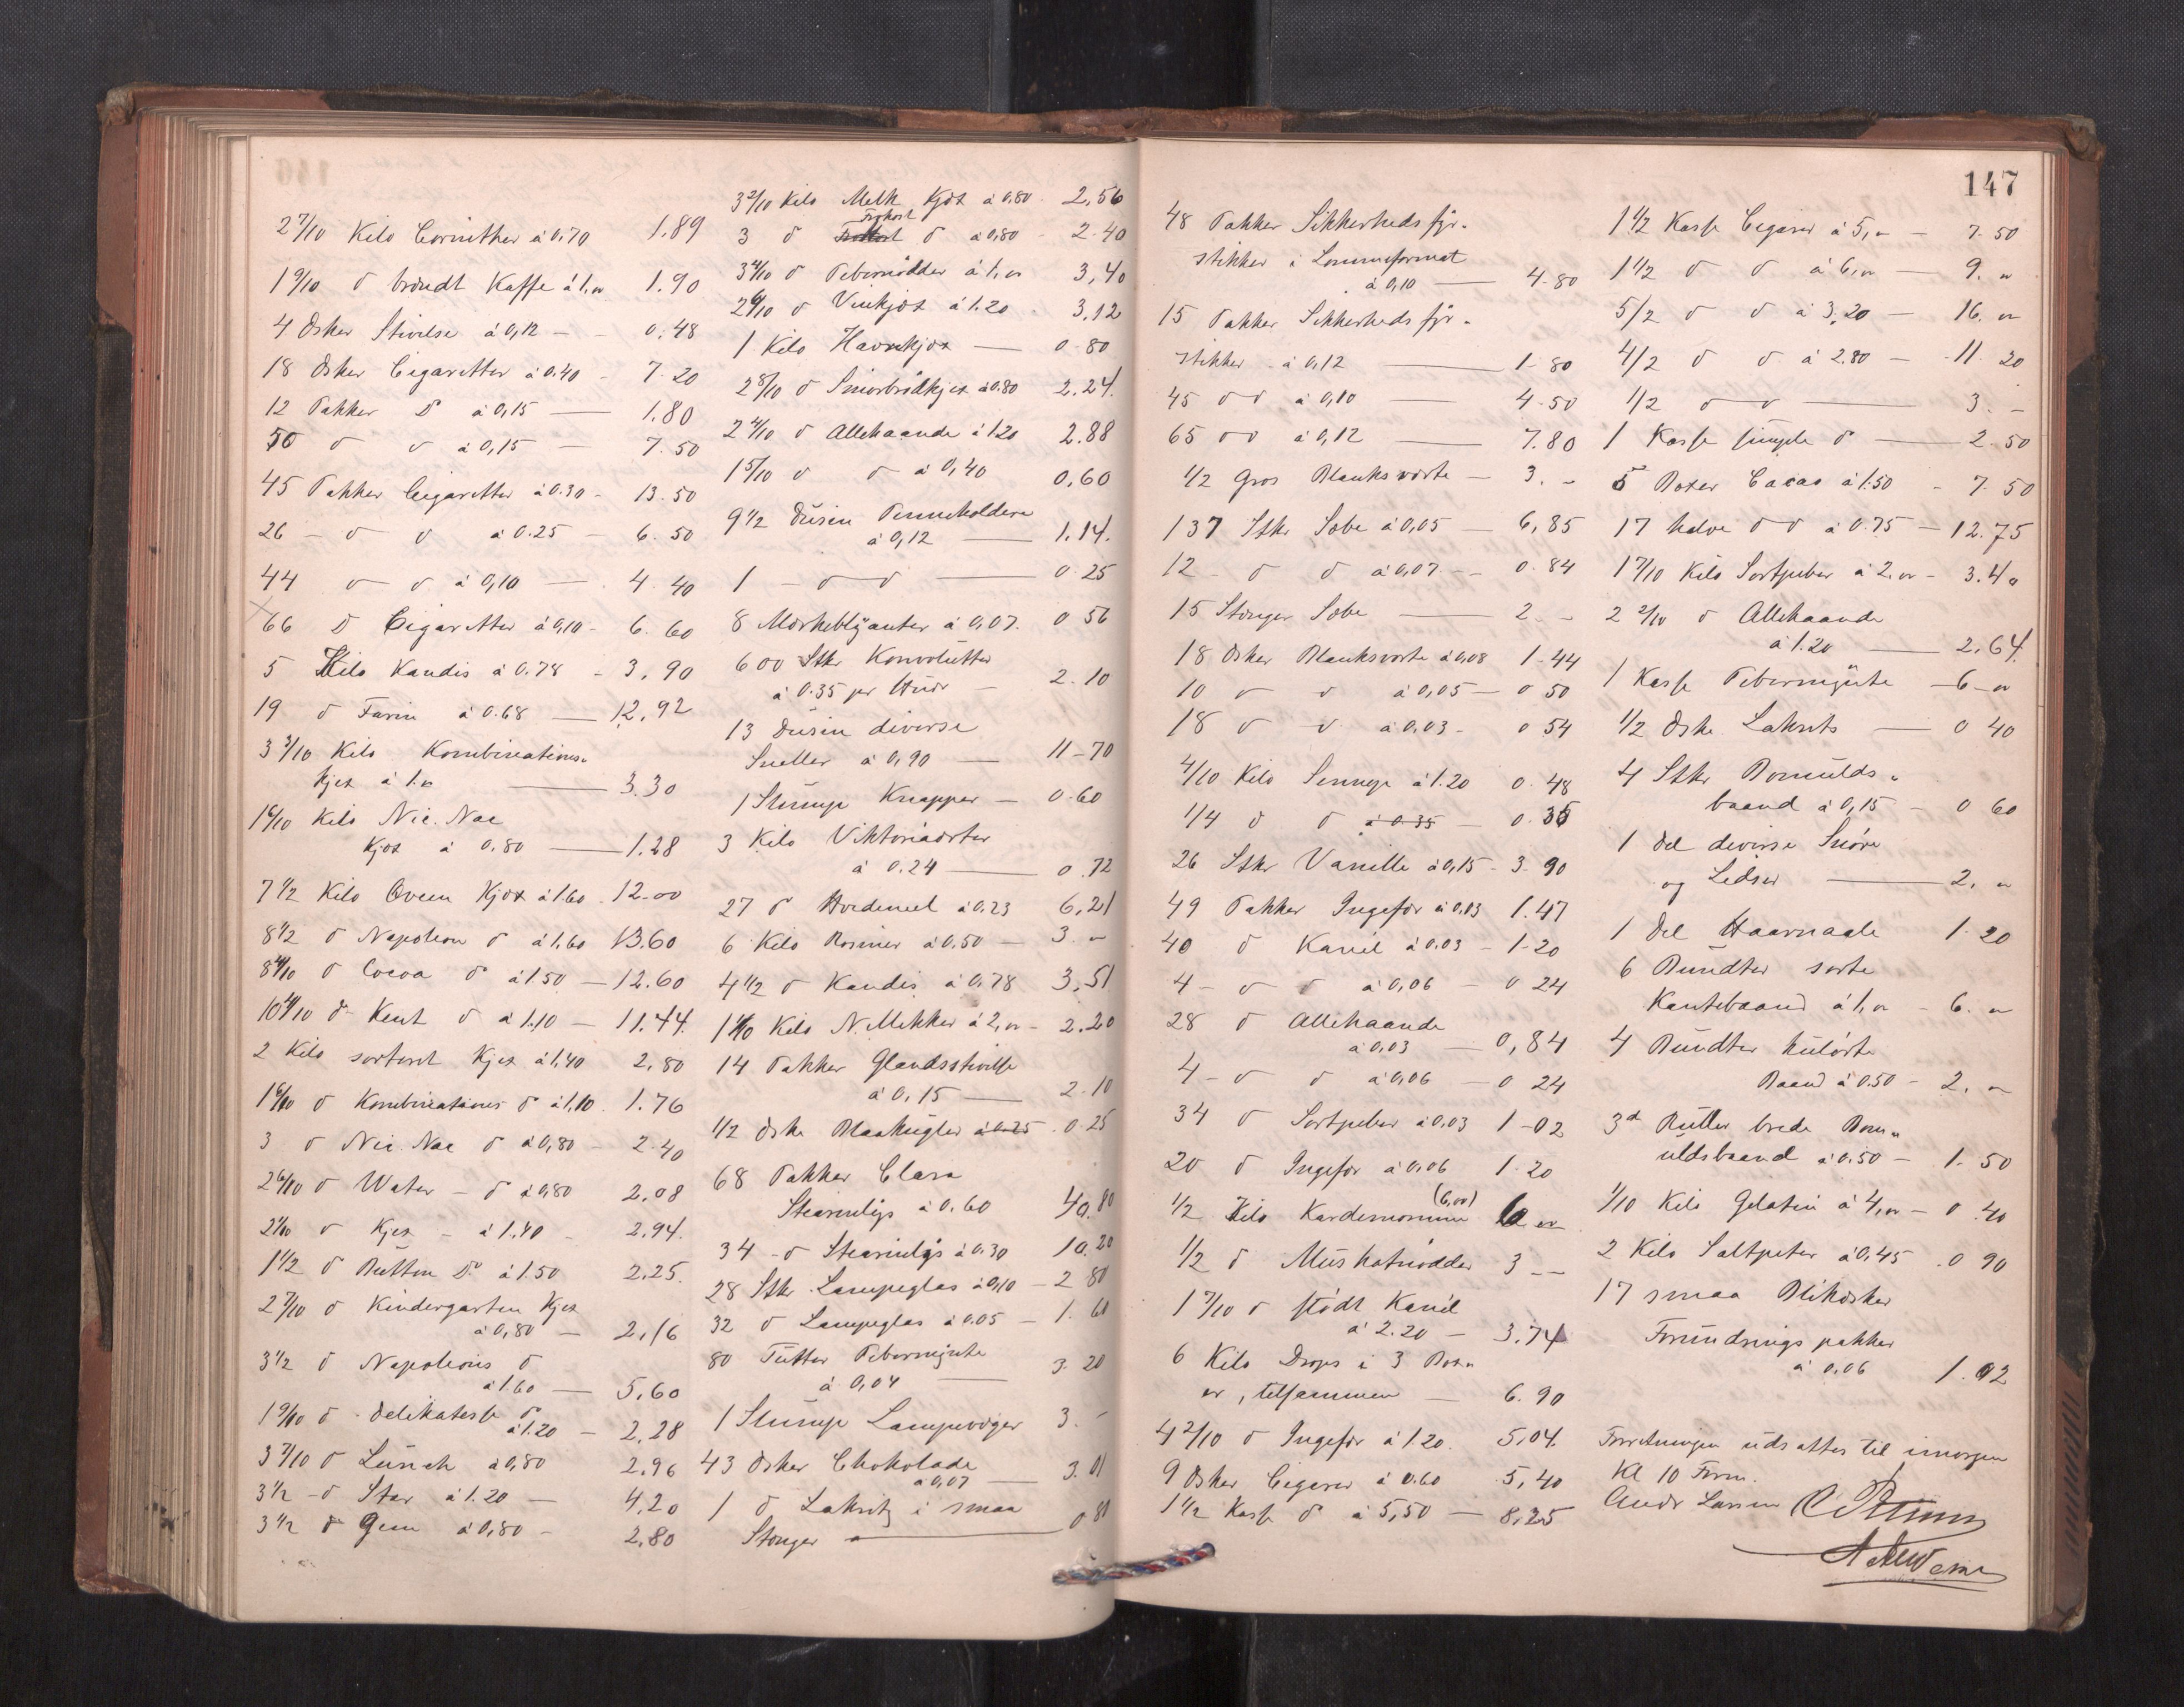 2 7/10 Kilo Corinther à 0,70 1.89
1 9/10 d brændt Kaffe à 1,„ 1.90
4 Æsker Stivelse à 0,12 — 0.48
18 Æsker Cigaretter à 0.40 - 7.20
12 Pakker D à 0,15 — 1.80
50 d d à 0,15 — 7.50
45 Pakker Cigaretter à 0.30 - 13.50
26 - d d à 0.25 - 6.50
44 d d à 0,10 — 4.40
66 D Cigaretter à 0,10 - 6.60
5 Kilo Kandis à 0.78 - 3,90
19 d Farin à 0.68 — 12,92
3 3/10 Kilo Kombinations-
kjex à 1.„ — 3.30
1 6/10 Kilo Nic. Nac
Kjex à 0.80 — 1.28
7 1/2 Kilo Queen Kjex à 1.60 . 12.00
8 1/2 d Napoleon d à 1,60 13.60
8 4/10 d Cocoa d à 1.50 — 12.60
10 4/10 d Kent d à 1.10 — 11.44
2 Kilo sorteret Kjex à 1,40 2,80
1 6/10 d Kombinations d à 1,10 . 1.76
3 d Nic. Nac d à 0,80 - 2.40
2 6/10 d Water - d à 0,80 2.08
2 1/10 d Kjex - à 1.40 - 2.94.
1 1/2 d Button D. à 1.50 2.25.
2 7/10 d Kindergarten Kjex
à 0,80 — 2.16
3 1/2 d Napoleons d
à 1.60 — 5,60
1 9/10 d Delikatesse d
à 1.20 — 2,28
3 7/10 d Lunch à 0,80 2.96
3 1/2 - d Star à 1.20 — 4,20
3 1/2 d Gem à 0,80 - 2.80
3 2/10 Kilo Melk Kjex à 0,80 . 2,56
Frokost
3 d d à 0,80 - 2.40
3 4/10 d Pebernødder à 1,„ 3,40
2 6/10 d Vinkjex à 1.20 . 3.12
1 Kilo Havrekjex — 0.80
2 8/10 d Smørbrødkjex à 0.80 2.24.
2 4/10 d Allehaande à 1.20 2.88
1 5/10 d d à 0,40 0,60
9 1/2 Dusin Penneholdere
à 0,12 — 1.14.
1 - d d — 0.25
8 Mærkeblyanter à 0,07. 0 56
600 Stkr Konvolutter
à 0.35 per Hundr — 2.10
13 Dusin diverse
Sneller à 0,90 — 11-70
1 Slump Knapper — 0.60
3 Kilo Viktoriaærter
à 0.24 — 0.72
27 d Hvedemel à 0.23 6,21
6 Kilo Rosiner à 0.50 — 3. „
4 1/2 d Kandis à 0.78 3,51
1 1/10 Kilo N. Mekker à 2,„ - 2.20
14 Pakker Glandsstivelse
à 0,15 — 2.10
1/2 Æske Blaakugler à 0.25 . 0.25
68 Pakker Clara
Stearinlys à 0.60 40.80
34 - d Stearinlys à 0.30 10.20
28 Stkr Lampeglas à 0,10 - 2 80
32 d Lampeglas à 0.05 - 1.60
80 Tutter Pebermynte
à 0,04 — 3.20
1 Slump Lampevæger 3. -
43 Æsker Chokolade
à 0,07 — 3.01
1 d Lakrits i smaa
Stænger — 0.80
147
48 Pakker Sikkerhedsfyr-
stikker i Lommeformat
à 0,10 — 4.80
15 Pakker Sikkerhedsfyr-
stikker à 0,12 — 1.80
45 d d à 0,10 — 4.50
65 d d à 0,12 — 7.80
1/2 Gros Blanksværte — 3. -
137 Stkr Sæbe à 0,05 — 6,85
12 - d d à 0,07 - 0.84
15 Stænger Sæbe — 2 -
18 Æsker Blanksværte à 0,08 1.44
10 d d à 0,05 — 0 50
18 d d à 0,03 - 0 54
4/10 Kilo Sennep à 1.20 0.48
1/4 d d à 0.35 — 0.35
26 Stkr Vanille à 0,15 - 3.90
49 Pakker Ingefær à 0.03 1.47
40 d Kanel à 0.03 - 1.20
4 - d d à 0,06 - 0 24
28 d Allehaande
à 0,03 — 0,84
4 - d d à 0,06 - 0 24
34 d Sortpeber à 0,03 1-02
20 d Ingefær à 0,06 1.20
1/2 Kilo Kardemomme (6,00) 6 „
1/2 d Muskatnødder 3 --
1 7/10 d stødt Kanel
à 2.20 — 3.74
6 Kilo Drops i 3 Box-
er, tilsammen — 6.90
4 2/10 d Ingefær à 1.20. 5,04.
9 Æsker Cigarer à 0.60 5,40
1 1/2 Kasse d à 5,50 — 8,25
1 1/2 Kasse Cigarer à 5,„ — 7.50
1 1/2 d d à 6,„ — 9. „
5/2 d d à 3.20 — 16. „
4/2 d d à 2.80 — 11.20
1/2 d d — 3. -
1 Kasse simple d — 2.50
5 Boxer Cacao à 1.50 - 7.50
17 halve d d à 0.75 — 12.75
1 7/10 Kilo Sortpeber à 2.„ - 3.40
2 2/10 d Allehaande
à 1.20 — 2.64.
1 Kasse Pebermynte — 6 - „
1/2 Æske Lakrits — 0 40
4 Stkr Bomulds-
baand à 0,15 - 0 60
1 Del diverse Snøre
og Lidser — 2. „
1 Del Haarnaale 1.20
6 Bundter sorte
Kantebaand à 1,„ - 6. „
4 Bundter kulørte
Baand à 0.50 - 2. „
3 Ruller brede Bom-
uldsbaand à 0.50 - 1.50
1/10 Kilo Gelatin à 4,„ — 0.40
2 Kilo Saltpeter à 0,45 . 0 90
17 smaa Blikæsker
Forundringspakker
à 0,06 1.02
Forretningen udsattes til imorgen
Kl 10 Form.
Andr Larsen